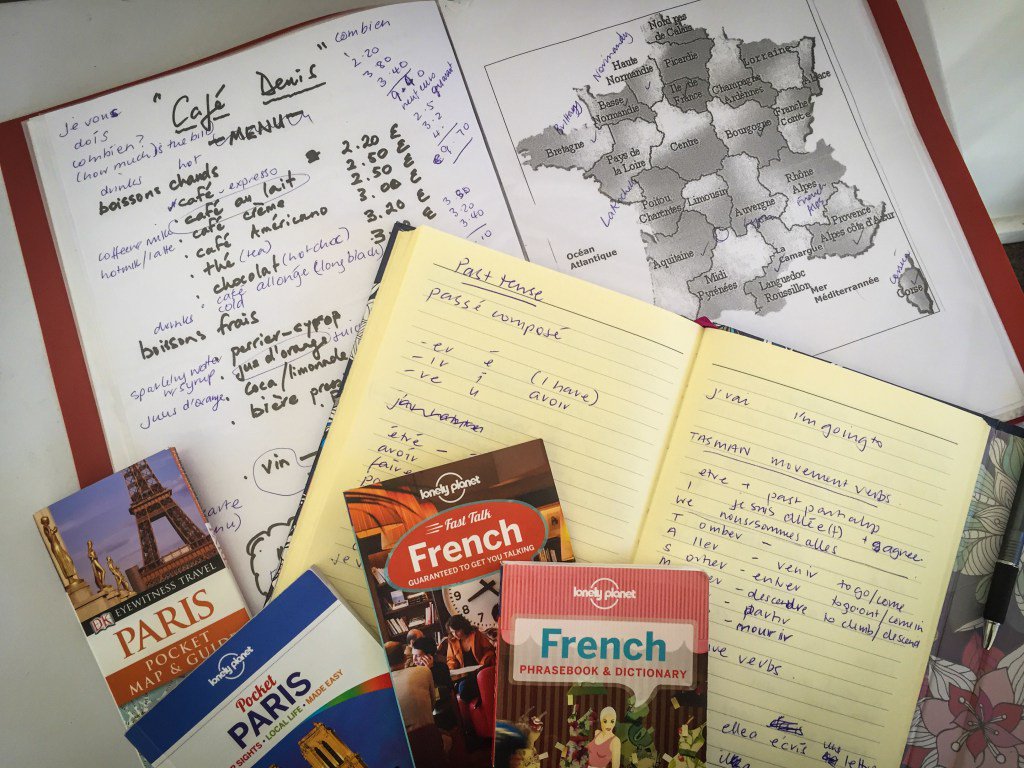 combien
" Café Denis "
MENU
je vous
dois
combien?
(how much is the bill)
drinks hot
boissons chauds
café - expresso 2.20 €
café au lait 2.50 €
café crème 2.50 €
café Américano 3.00 €
thé (tea) 3.20 €
chocolat (hot choc)
café allongé (long black)
coffee + milk
hot milk/latte
drinks cold
boissons frais
perrier-syrop
jus d'orange
coca/limonade
bière
sparkling water
w/syrup
juus d'orange
vin
2.20
3.80
3.40
2.5
3.2
3.80
3.20
3.40
Normandy
Brittany
Nord pas
de Calais
Haute
Normandie
Picardie
Lorraine
Alsace
Basse
Normandie
Ile de
France
Champagne
Ardennes
Bretagne
Pays de
la Loire
Centre
Bourgogne
Franche
Comté
Poitou
Charentes
Limousin
Auvergne
Rhône
Alpes
Aquitaine
Midi
Pyrénées
Languedoc
Roussillon
Camargue
Provence
Alpes côte d'Azur
Corse
Océan
Atlantique
Mer
Méditerranée
Past tense
passé composé
-er é
-ir i (I have)
-re u avoir
été
avoir
faire
j'vai I'm going to
TASMAN movement verbs
etre + past
je suis allée(f) + s agree
nous sommes alles
T omber - venir to go/come
A ller - entrer to go out/come in
S ortir - descendre to climb/descend
- partir
- mourir
verbs
elle a écris
DK EYEWITNESS TRAVEL
PARIS
POCKET
MAP & GUIDE
lonely planet
Pocket
PARIS
SIGHTS • LOCAL LIFE • MADE EASY
lonely planet
Fast Talk
French
GUARANTEED TO GET YOU TALKING
lonely planet
French
PHRASEBOOK & DICTIONARY